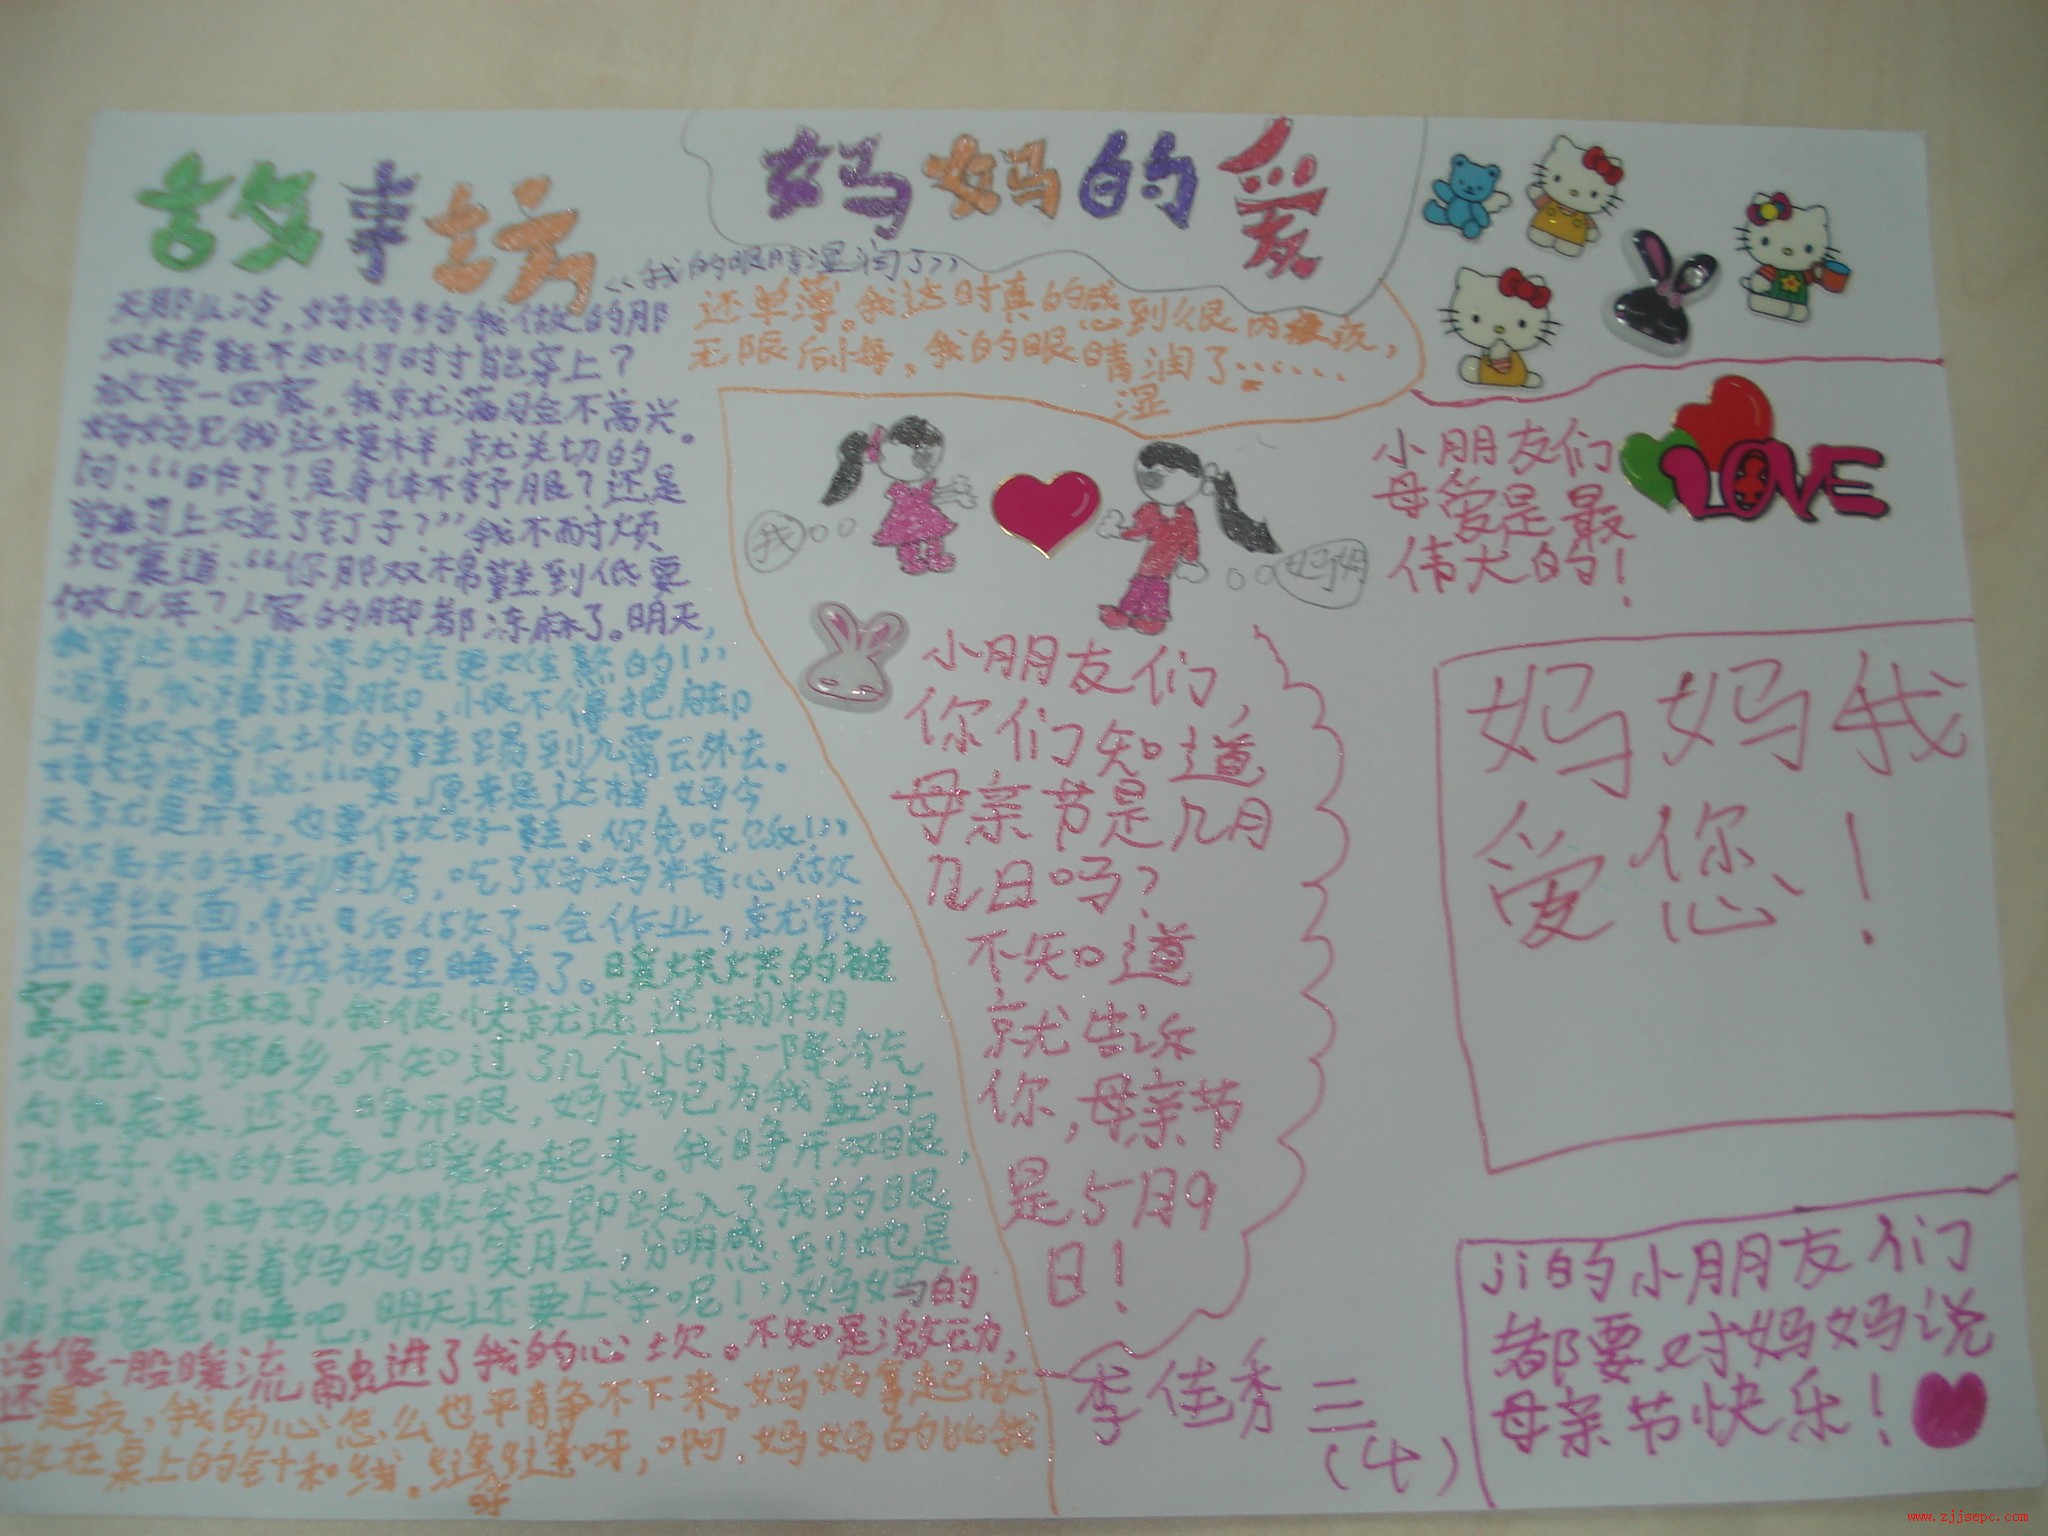 故事坊
妈妈的爱
《我的眼睛湿润了》
天那么冷,妈妈给我做的那
双棉鞋不知何时才能穿上?
放学一回家,我就满脸不高兴。
妈妈见我这模样,就关切的
问:“咋了?是身体不舒服?还是
学习上不並了钉子?”我不耐烦
地嚷道:“你那双棉鞋到低要
做几年?人家的脚都冻麻了。明天,
我穿这双鞋冻的会更难熬的!”
说着,我踢了踢脚,恨不得把脚
上那双不怎么坏的鞋踢到九霄云外去。
妈妈笑着说:“噢,原来是这样,妈今
天就是开车,也要做好鞋。你先吃饭!”
我不高兴的来到厨房,吃了妈妈半精心做
的面,然后做了一会作业,就钻
进了鸭绒被里睡着了。暖烘烘的被
窝里舒适极了,我很快就迷迷糊糊
地进入了梦乡。不知过了几个小时,一阵冷气
向我袭来,还没睁开眼,妈妈已为我盖好
了被子,我的全身又暖和起来。我睁开双眼,
朦胧中,妈妈的微笑立即跃入了我的眼
帘,我端详着妈妈的笑脸,分明感到她是
那样苍老。“睡吧,明天还要上学呢!”妈妈的
话像一股暖流融进了我的心坎。不知是激动,
还是疚,我的心怎么也平静不下来。妈妈拿起放
放在桌上的针和线。缝呀缝呀,啊,妈妈的比我
还单薄。我这时真的感到很内疚,
无限后悔,我的眼睛湿润了……
我
妈妈
小朋友们,
你们知道
母亲节是几月
几日吗?
不知道
就告诉
你,母亲节
是5月9
日!
李佳秀 三
(4)
LOVE
小朋友们
母爱是最
伟大的!
妈妈我
爱您!
ji的小朋友们
都要对妈妈说
母亲节快乐!
www.zjjsepc.com